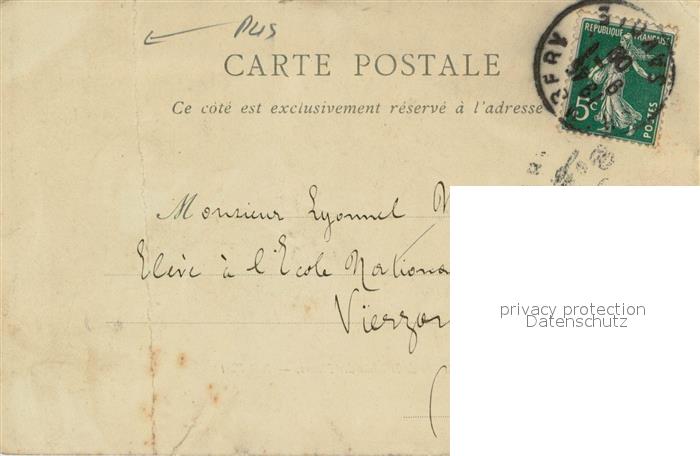 CARTE POSTALE
Ce côté est exclusivement réservé à l'adresse
REPUBLIQUE FRANÇAISE
5c
POSTES
Monsieur Lyonnel
Elève à l'Ecole Nationa
Vierzon
(
privacy protection
Datenschutz